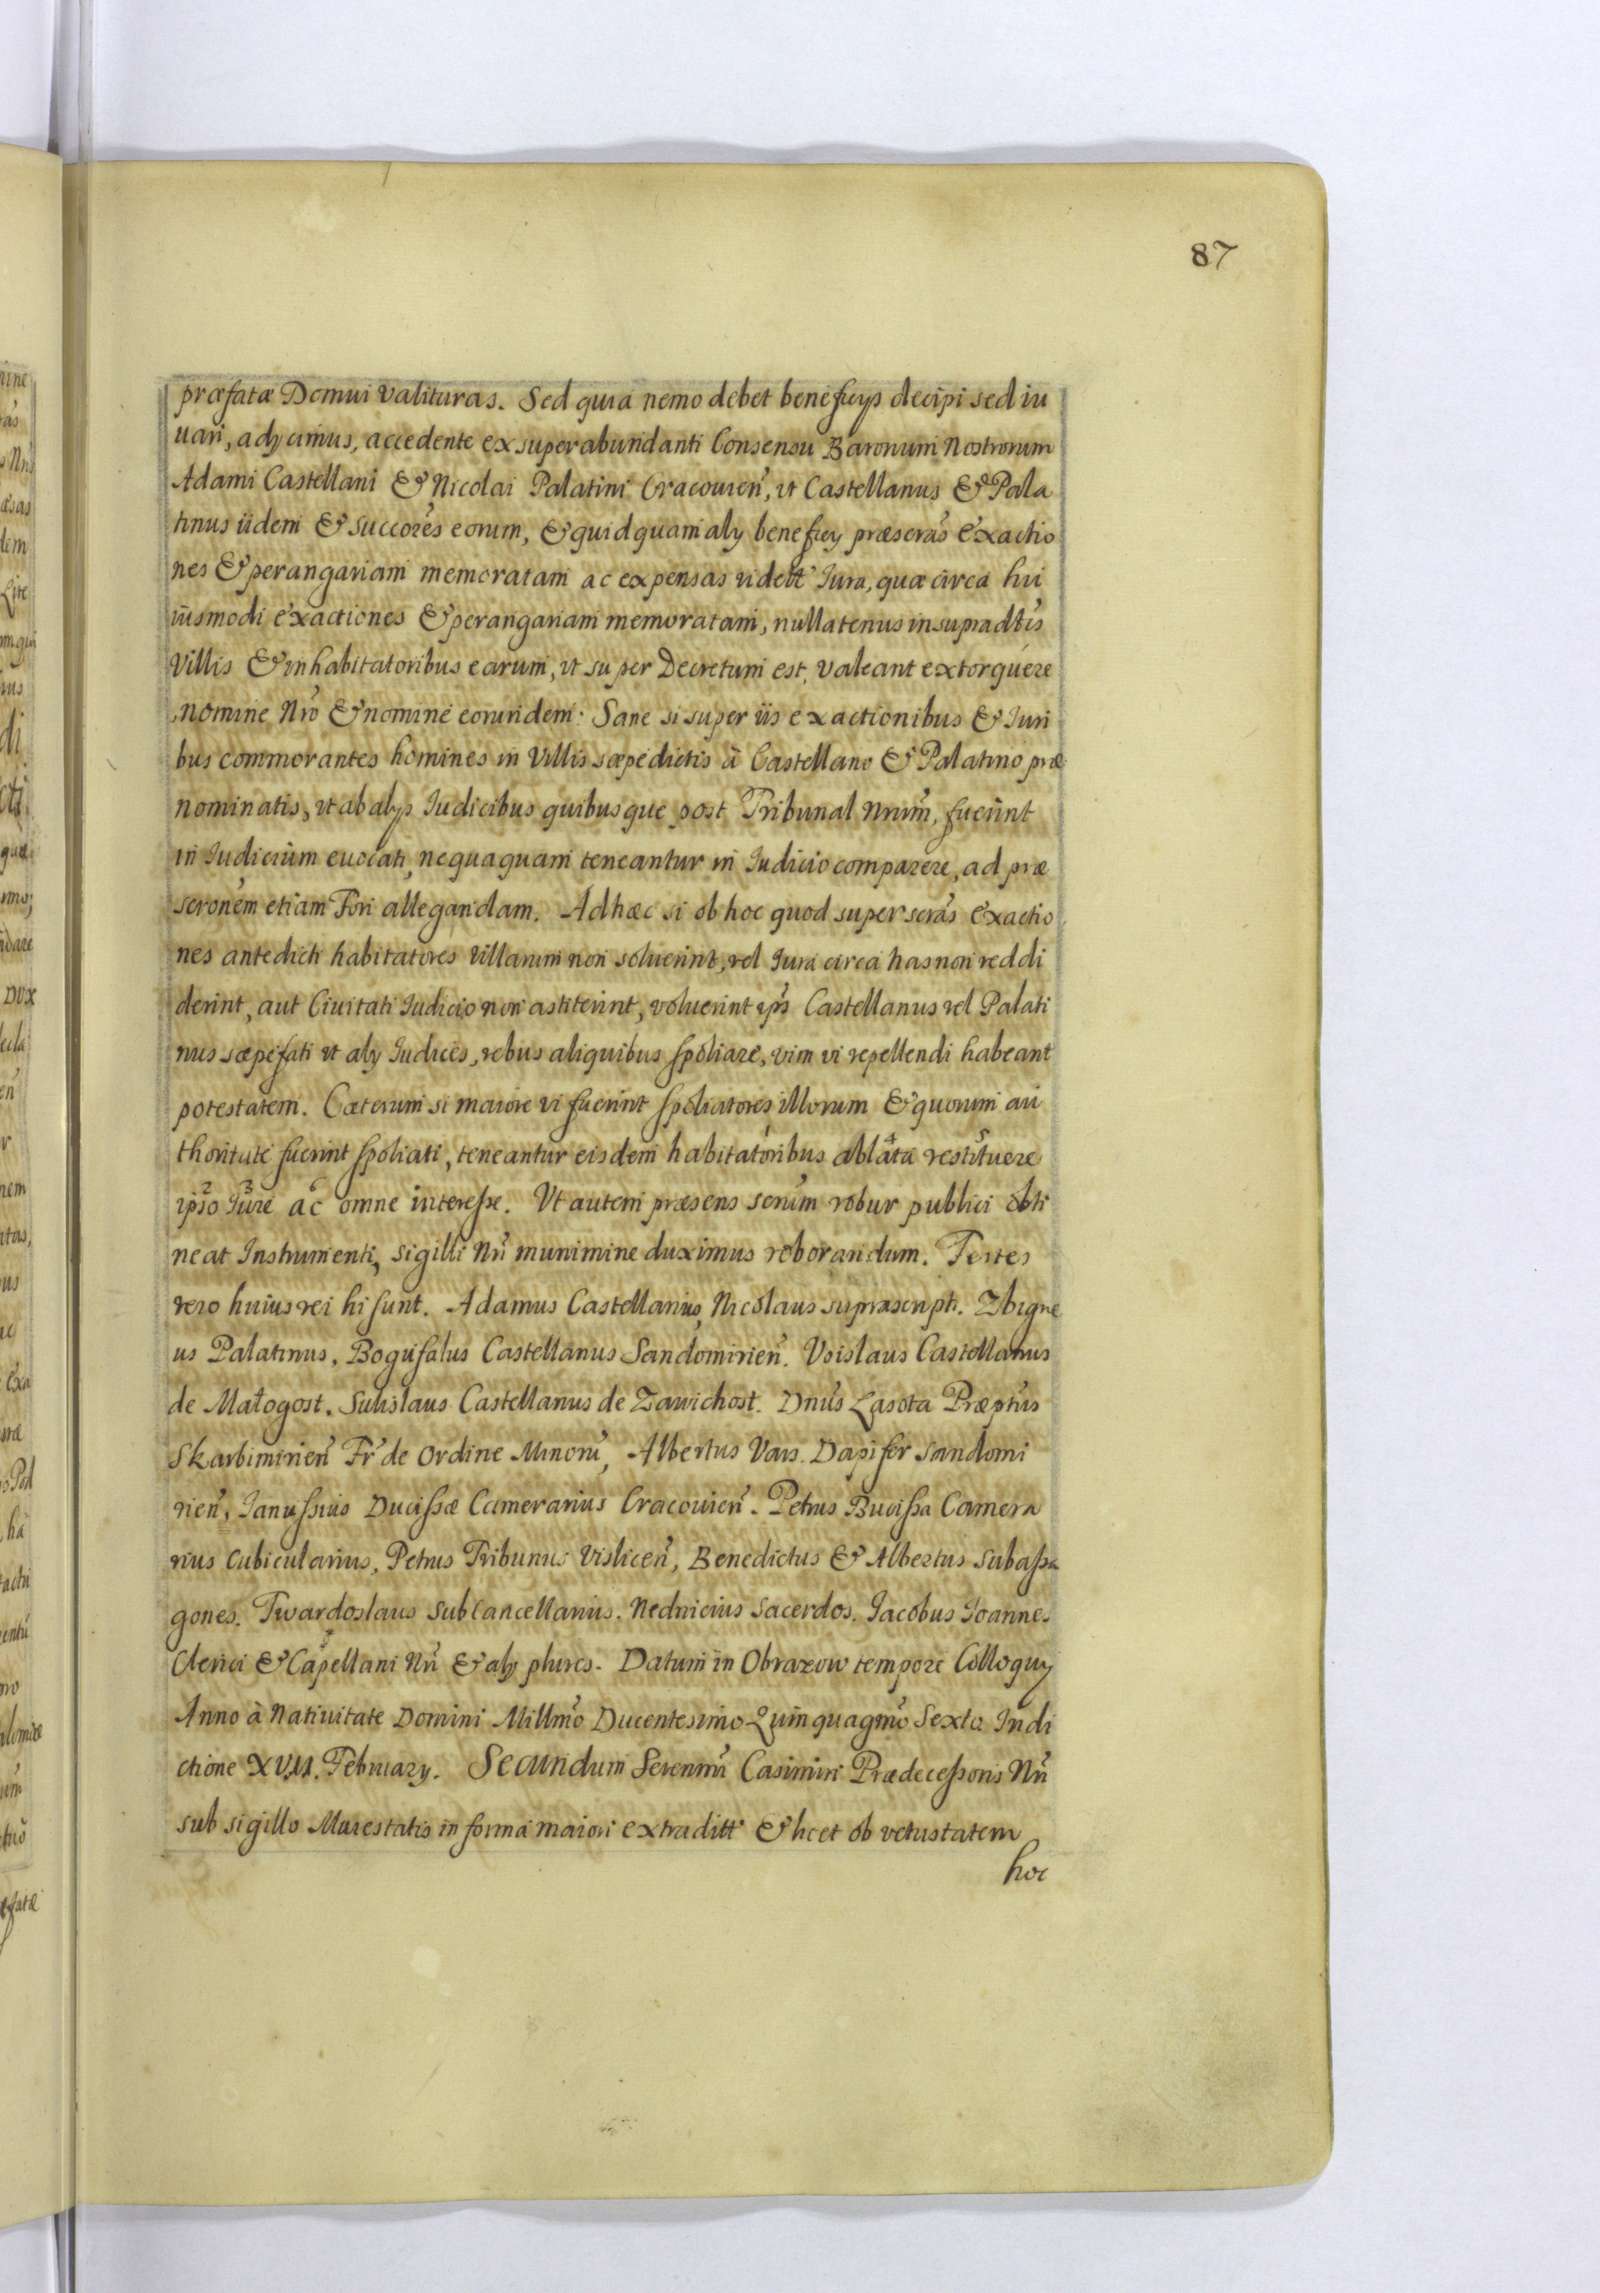 87
præfatæ Domui valituras. Sed quia nemo debet beneficys decipi sed iu
uari, adycimus, accedente ex superabundanti Consensu Baronum Nostrorum
Adami Castellani & Nicolai Palatini Cracouien̄, vt Castellanus & Pala
tinus iidem & succores eorum, & quidquam aly beneficy præscras exactio
nes & perangariam memoratam ac expensas videlt Iura, quæ circa hu
iusmodi exactiones & perangariam memoratam, nullatenus in supradtis
Villis & inhabitatoribus earum, vt super Decretum est, valeant extorquere
nomine Nro & nomine eorundem: Sane si super iis exactionibus & Iuri
bus commorantes homines in Villis sæpedictis à Castellano & Palatino præ
nominatis, vt ab alys Iudicibus quibusque post Tribunal Nrum, fuerint
in Iudicium euocati, nequaquam teneantur in Iudicio comparere, ad præ
scronem etiam Fori allegandam. Adhæc si ob hoc quod super scras exactio
nes antedicti habitatores villarum non soluerint, vel Iura circa has non reddi
derint, aut Ciuitati Iudicio non astiterint, voluerint ips Castellanus vel Palati
nus sæpefati vt aly Iudices, rebus aliquibus spoliare, vim vi repellendi habeant
potestatem. Cæterum si maiore vi fuerint spoliatores illorum & quorum au
thoritate fuerint spoliati, teneantur eisdem habitatoribus ablata restituere
ipso Iure ac omne interesse. Vt autem præsens scrum robur publici obti
neat Instrumenti, sigilli Nri munimine duximus roborandum. Testes
vero huius rei hi sunt. Adamus Castellanus, Nicolaus suprascripti. Zbigne
us Palatinus, Bogufalus Castellanus Sandomirien̄. Voislaus Castellanus
de Małogost. Sulislaus Castellanus de Zawichost. Dnus Lasota Præptus
Skarbimirien̄ Fr de Ordine Minoru, Albertus Vars. Dapifer Sandomi
rien̄, Ianussius Ducissæ Camerarius Cracouien̄. Petrus Bucissa Camera
rius Cubicularius, Petrus Tribunus Vislicen̄, Benedictus & Albertus Subassa
gones. Twardoslaus Subcancellarius. Nednicius Sacerdos. Jacobus Joannes
Clerici & Capellani Nri & aly plures. Datum in Obrazow tempore Colloquy
Anno à Natiuitate Domini Millmo Ducentesimo Quinquagmo Sexto Indi
ctione XVM. February. Secundum Serenmi Casimiri Prædecessoris Nri
sub sigillo Maiestatis in forma maiori extraditt & licet ob vetustatem
hoc